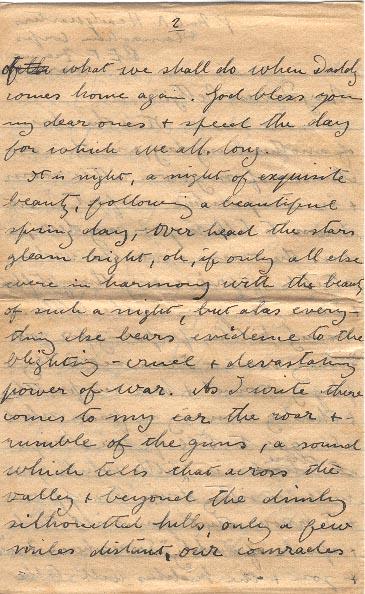 2
what we shall do when Daddy
comes home again. God bless you
my dear ones + speed the day
for which we all long.
It is night, a night of exquisite
beauty, following a beautiful
spring day, over head the stars
gleam bright, oh, if only all else
were in harmony with the beauty
of such a night, but alas every-
thing else bears evidence to the
blighting - cruel + devastating
power of war. As I write there
comes to my ear the roar +
rumble of the guns, a sound
which tells that across the
valley + beyond the dimly
silhouetted hills, only a few
miles distant, our comrades